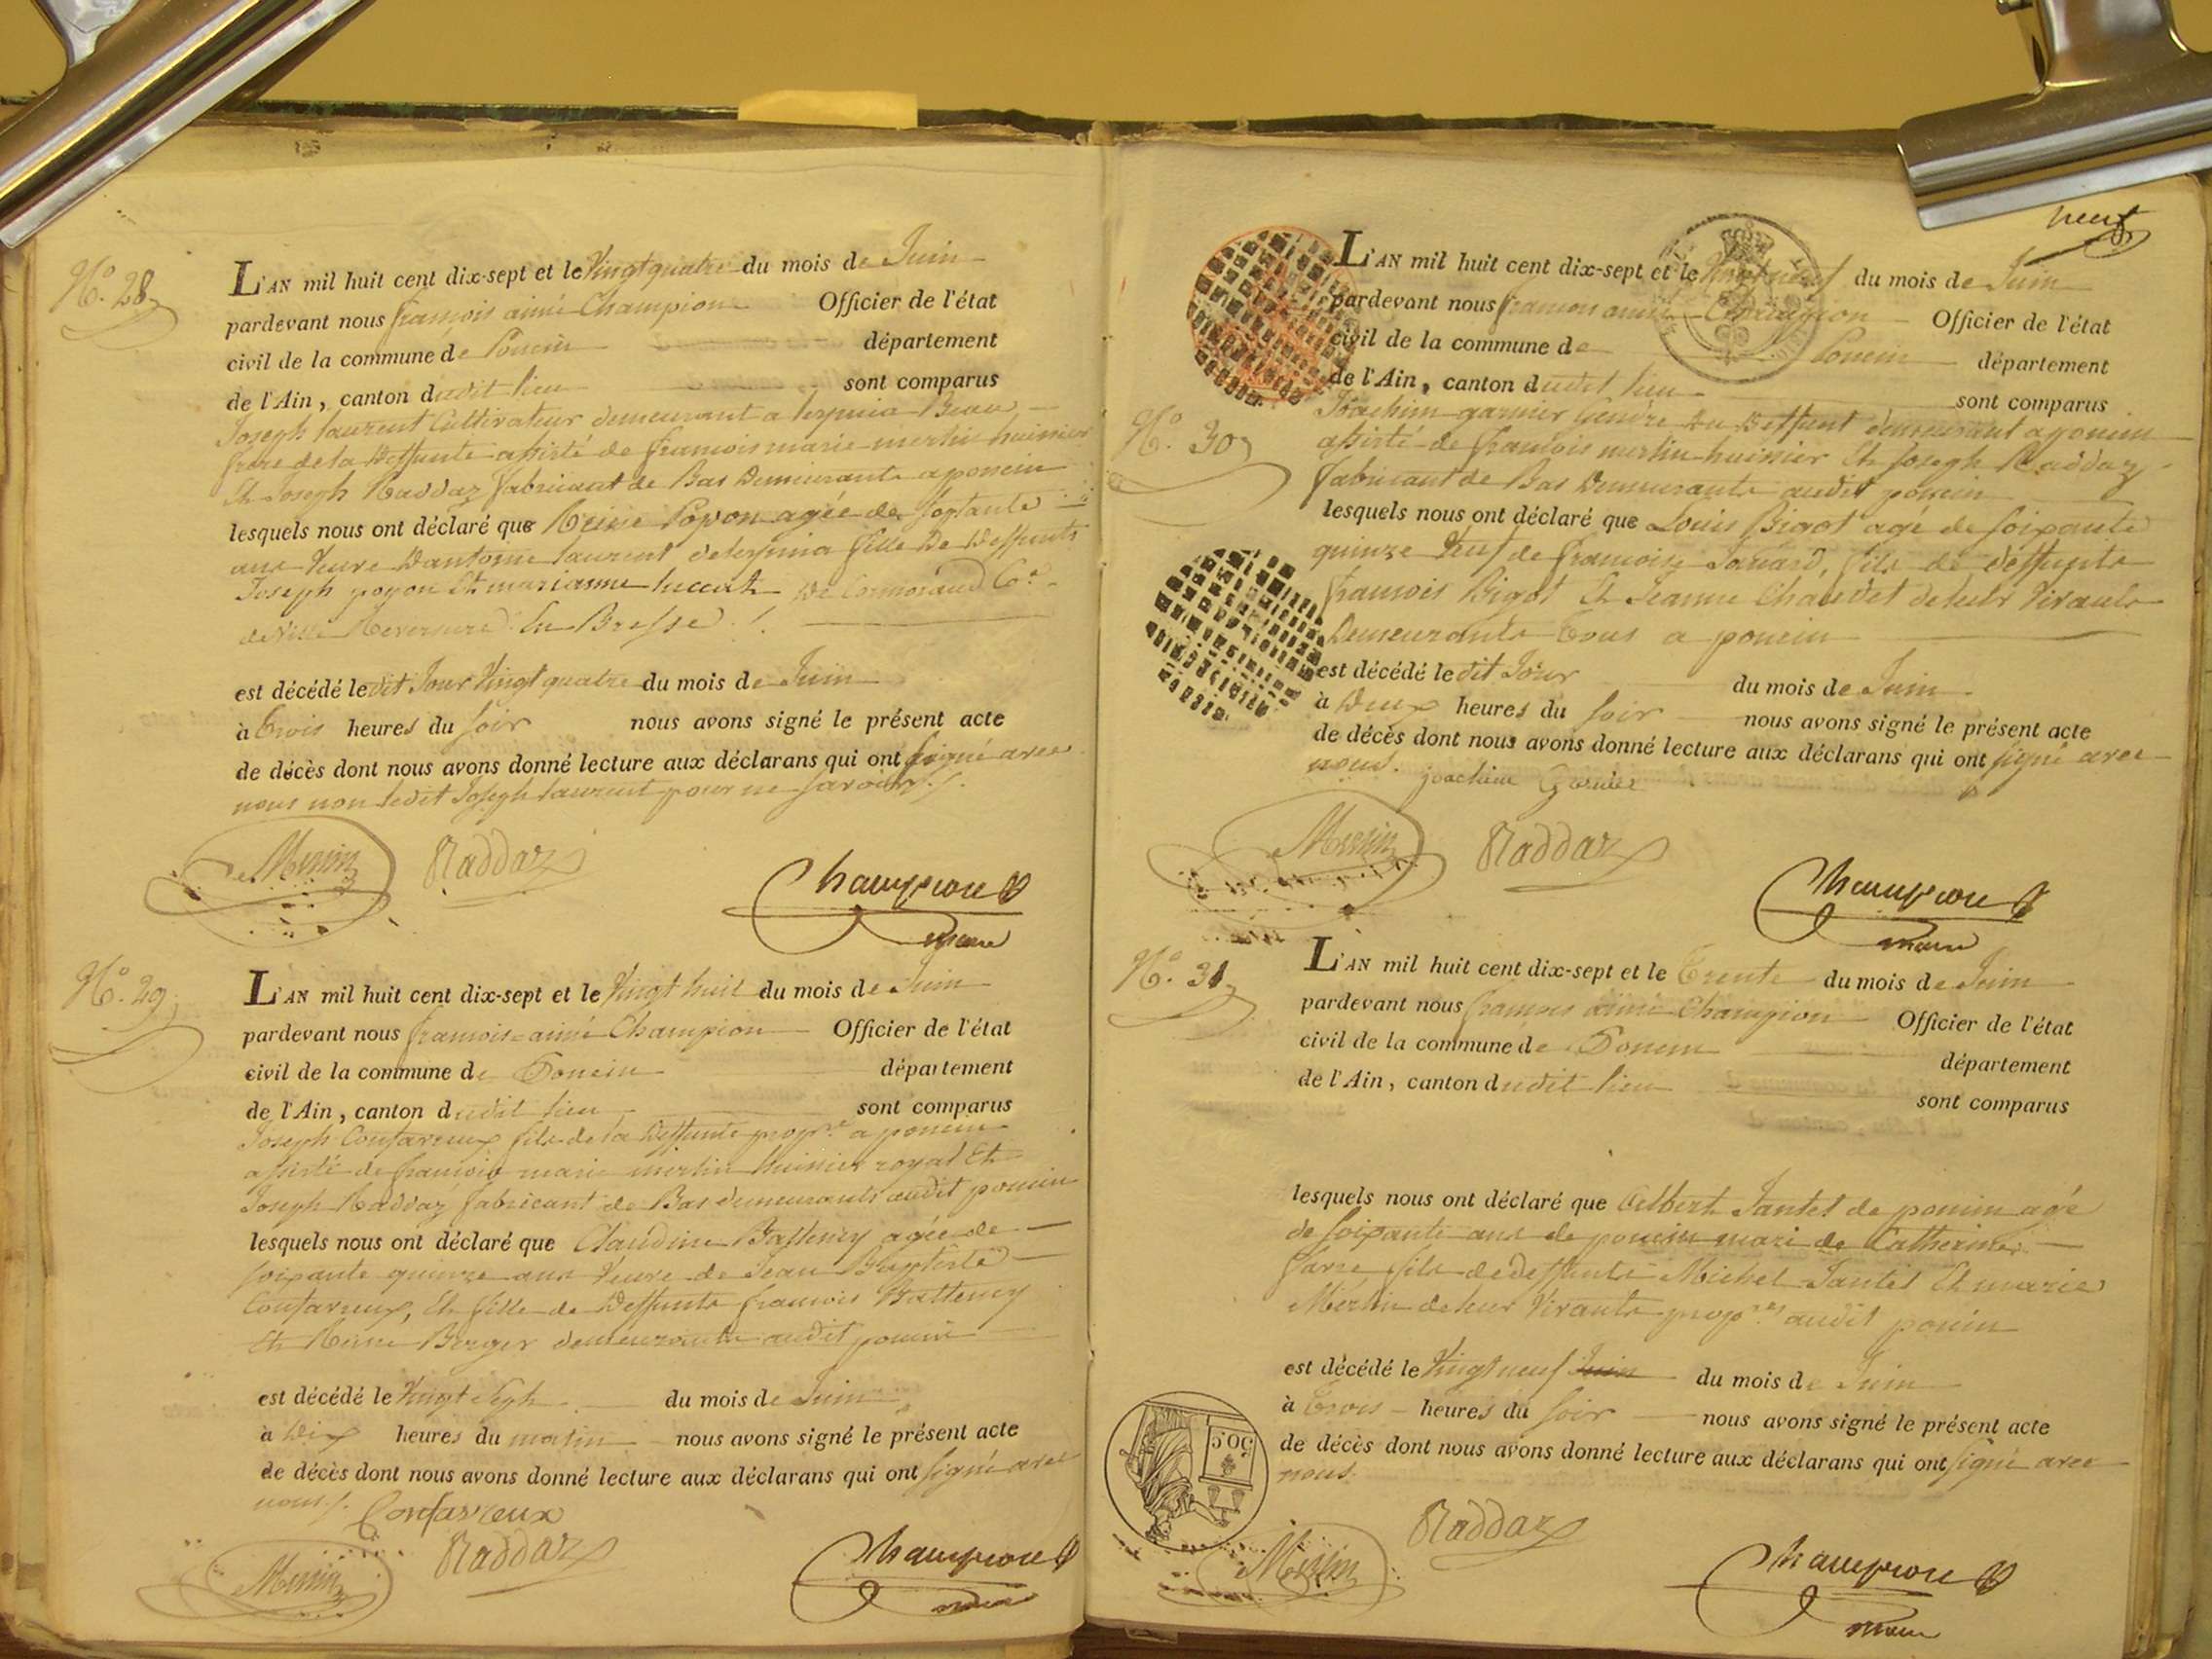 N.º 28
L'AN mil huit cent dix-sept et le Vingt quatre du mois de Juin
pardevant nous françois aimé Champion Officier de l'état
civil de la commune de Poncin département
de l'Ain, canton dudit lieu sont comparus
Joseph laurent Cultivateur demeurant a
frere de la deffunte assisté de françois marie merlin huissier
Et Joseph Raddaz fabricant de Bas Demeurants a poncin
lesquels nous ont déclaré que Reine Poyon agée de Soptante
ans Veuve Dantoine laurent fille De Deffunts
Joseph poyon Et marianne De
de En Bresse
est décédé ledit Jour Vingt quatre du mois de Juin
à trois heures du soir nous avons signé le présent acte
de décès dont nous avons donné lecture aux déclarans qui ont signé avec
nous non ledit Joseph laurent pour ne savoir
Merlin Raddaz
Champion
maire
N.º 29
L'AN mil huit cent dix-sept et le Vingt huit du mois de Juin
pardevant nous françois aimé Champion Officier de l'état
civil de la commune de Poncin département
de l'Ain, canton dudit lieu sont comparus
Joseph Confavreux fils de la Deffunte prop.re a poncin
assisté de françois marie merlin huissier royal Et
Joseph Raddaz fabricant de Bas demeurants audit poncin
lesquels nous ont déclaré que Claudine agée de
soixante quinze ans Veuve de Jean Baptiste
Confavreux, Et fille de Deffunts francois
Et Reine Berger demeurants audit poncin
est décédé le Vingt Sept du mois de Juin
à Dix heures du matin nous avons signé le présent acte
de décès dont nous avons donné lecture aux déclarans qui ont signé avec
nous Confavreux
Merlin Raddaz
Champion
maire
neuf
L'AN mil huit cent dix-sept et le Vingt neuf du mois de Juin
pardevant nous francois aimé Champion Officier de l'état
civil de la commune de Poncin département
de l'Ain, canton dudit lieu sont comparus
N.º 30
Joachim garnier Gendre Du Deffunt demeurant a poncin
assisté de francois merlin huissier Et Joseph Raddaz
fabricant de Bas Demeurants audit poncin
lesquels nous ont déclaré que Louis Bigot agé de soixante
quinze Veuf de francoise fils de deffunts
francois Bigot Et Jeanne Chaudet de leur Vivants
Demeurants Tous a poncin
est décédé ledit Jour du mois de Juin
à Deux heures du soir nous avons signé le présent acte
de décès dont nous avons donné lecture aux déclarans qui ont signé avec
nous. joachim Garnier
Merlin Raddaz
Champion
maire
N.º 31
L'AN mil huit cent dix-sept et le Trente du mois de Juin
pardevant nous françois aimé Champion Officier de l'état
civil de la commune de Poncin département
de l'Ain, canton dudit lieu sont comparus
lesquels nous ont déclaré que Albert Jantet de poncin agé
de soixante ans de poncin mari de Catherine
farre fils de deffunts Michel Jantet Et marie
Merlin de leur Vivants prop.res audit poncin
est décédé le Vingt neuf Juin du mois de Juin
à trois heures du soir nous avons signé le présent acte
de décès dont nous avons donné lecture aux déclarans qui ont signé avec
nous.
50.C
Merlin Raddaz
Champion
maire